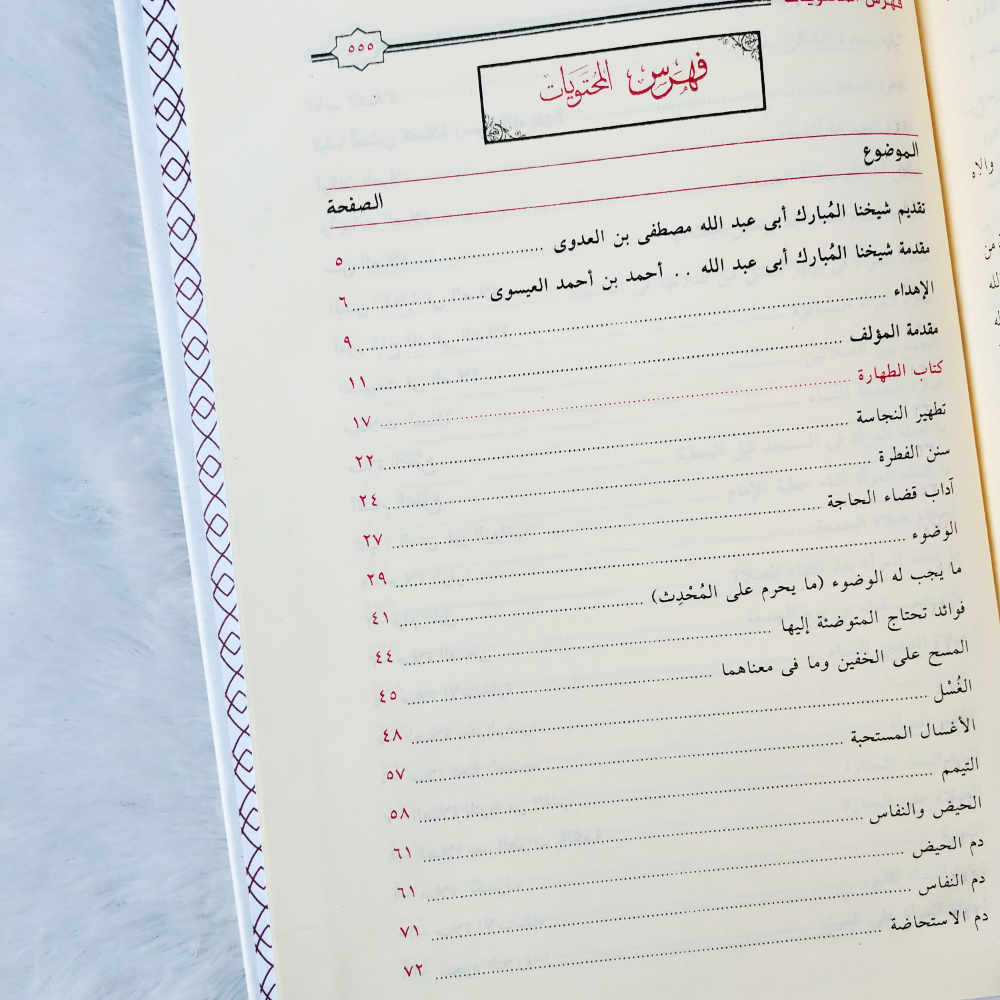 فهرس المحتويات
٥٥٥
فِهْرَسِ المُحْتَوَيَات
الموضوع الصفحة
تقديم شيخنا المُبارك أبى عبد الله مصطفى بن العدوى ................ ٥
مقدمة شيخنا المُبارك أبى عبد الله .. أحمد بن أحمد العيسوى ................ ٦
الإهداء ................ ٩
مقدمة المؤلف ................ ١١
كتاب الطهارة ................ ١٧
تطهير النجاسة ................ ٢٢
سنن الفطرة ................ ٢٤
آداب قضاء الحاجة ................ ٢٧
الوضوء ................ ٢٩
ما يجب له الوضوء (ما يحرم على المُحْدِث) ................ ٤١
فوائد تحتاج المتوضئة إليها ................ ٤٤
المسح على الخفين وما فى معناهما ................ ٤٥
الغُسْل ................ ٤٨
الأغسال المستحبة ................ ٥٧
التيمم ................ ٥٨
الحيض والنفاس ................ ٦١
دم الحيض ................ ٦١
دم النفاس ................ ٧١
دم الاستحاضة ................ ٧٢